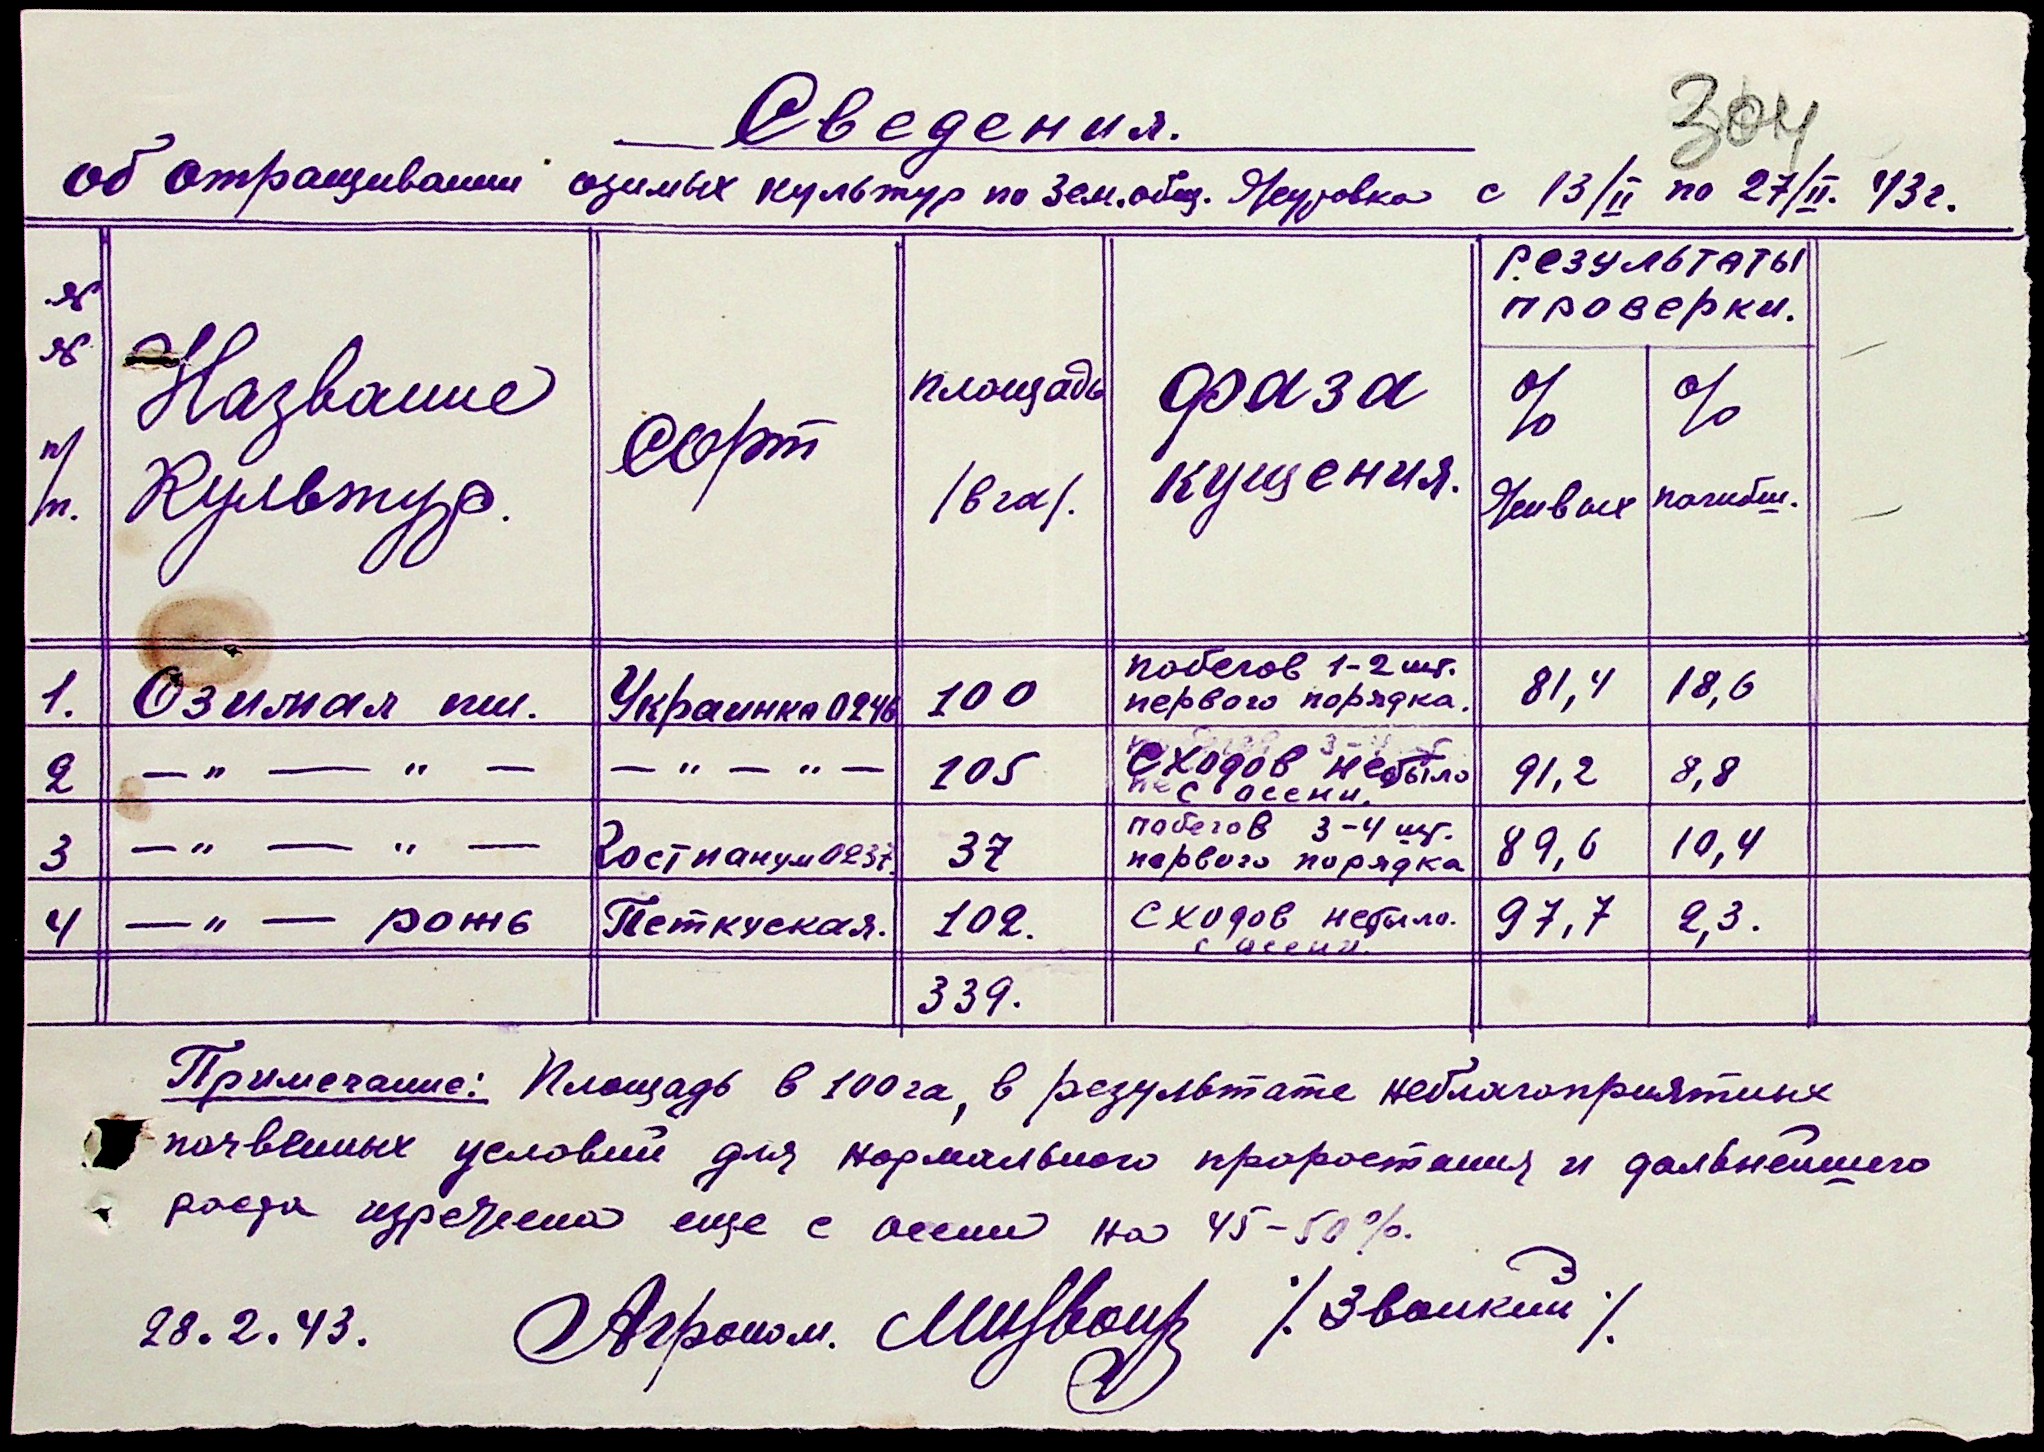 304
Сведения.
об отращивании озимых культур по Зем.общ. с 13/II по 27/II. 43г.
№
№
п/
п.
Название
Культур.
Сорт
площадь
/в га/.
Фаза
кущения.
Результаты
проверки.
%
Живых
%
погибш.
1. Озимая пш. Украинка 0246 100 побегов 1-2 шт. первого порядка. 81,4 18,6
2 —"— "— —"—"— 105 Сходов не было с осени. 91,2 8,8
3 —"— "— Гостианум 0237. 37 побегов 3-4 шт. первого порядка 89,6 10,4
4 —"— рожь Петкуская. 102. Сходов не было. с осени. 97,7 2,3.
339.
Примечание: Площадь в 100 га, в результате неблагоприятных
почвенных условий для нормального проростания и дальнейшего
роста изрежена еще с осени на 45-50%.
28.2.43. Агроном. /Звонкий/.